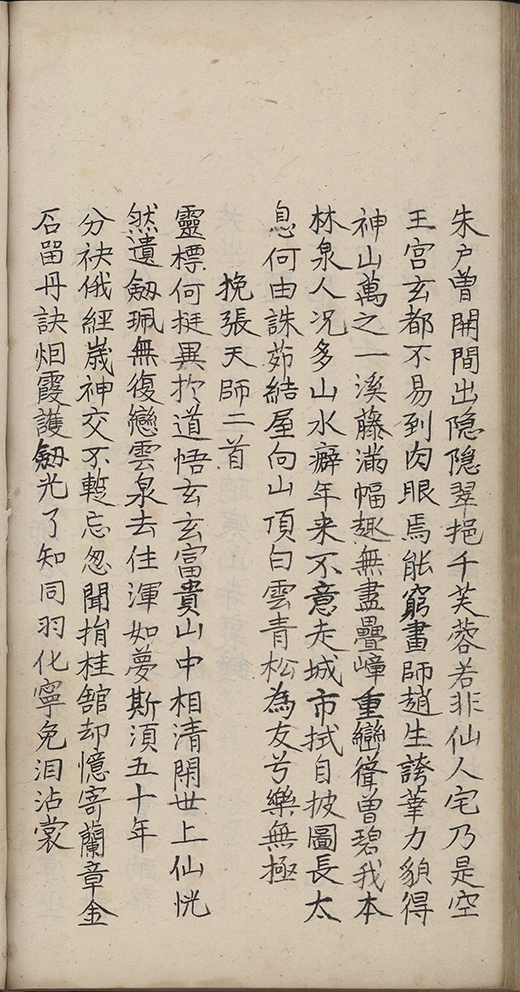 朱户曽開間出隐隐翠挹千芙蓉若非仙人宅乃是空
王宫玄都不易到肉眼焉能窮畫師趙生誇筆力貌得
神山萬之一溪藤滿幅趣無盡疊嶂重巒聳曽碧我本
林泉人况多山水癖年来不意走城市拭目披圖長太
息何由誅茆結屋向山頂白雲青松為友兮樂無極
挽張天師二首
靈標何挺異扵道悟玄玄富貴山中相清閑世上仙恍
然遺劔珮無復戀雲泉去住渾如夢斯須五十年
分袂俄經嵗神交不蹔忘忽聞捐桂舘却憶寄蘭章金
石留丹訣烟霞護劔光了知同羽化寧免泪沾裳